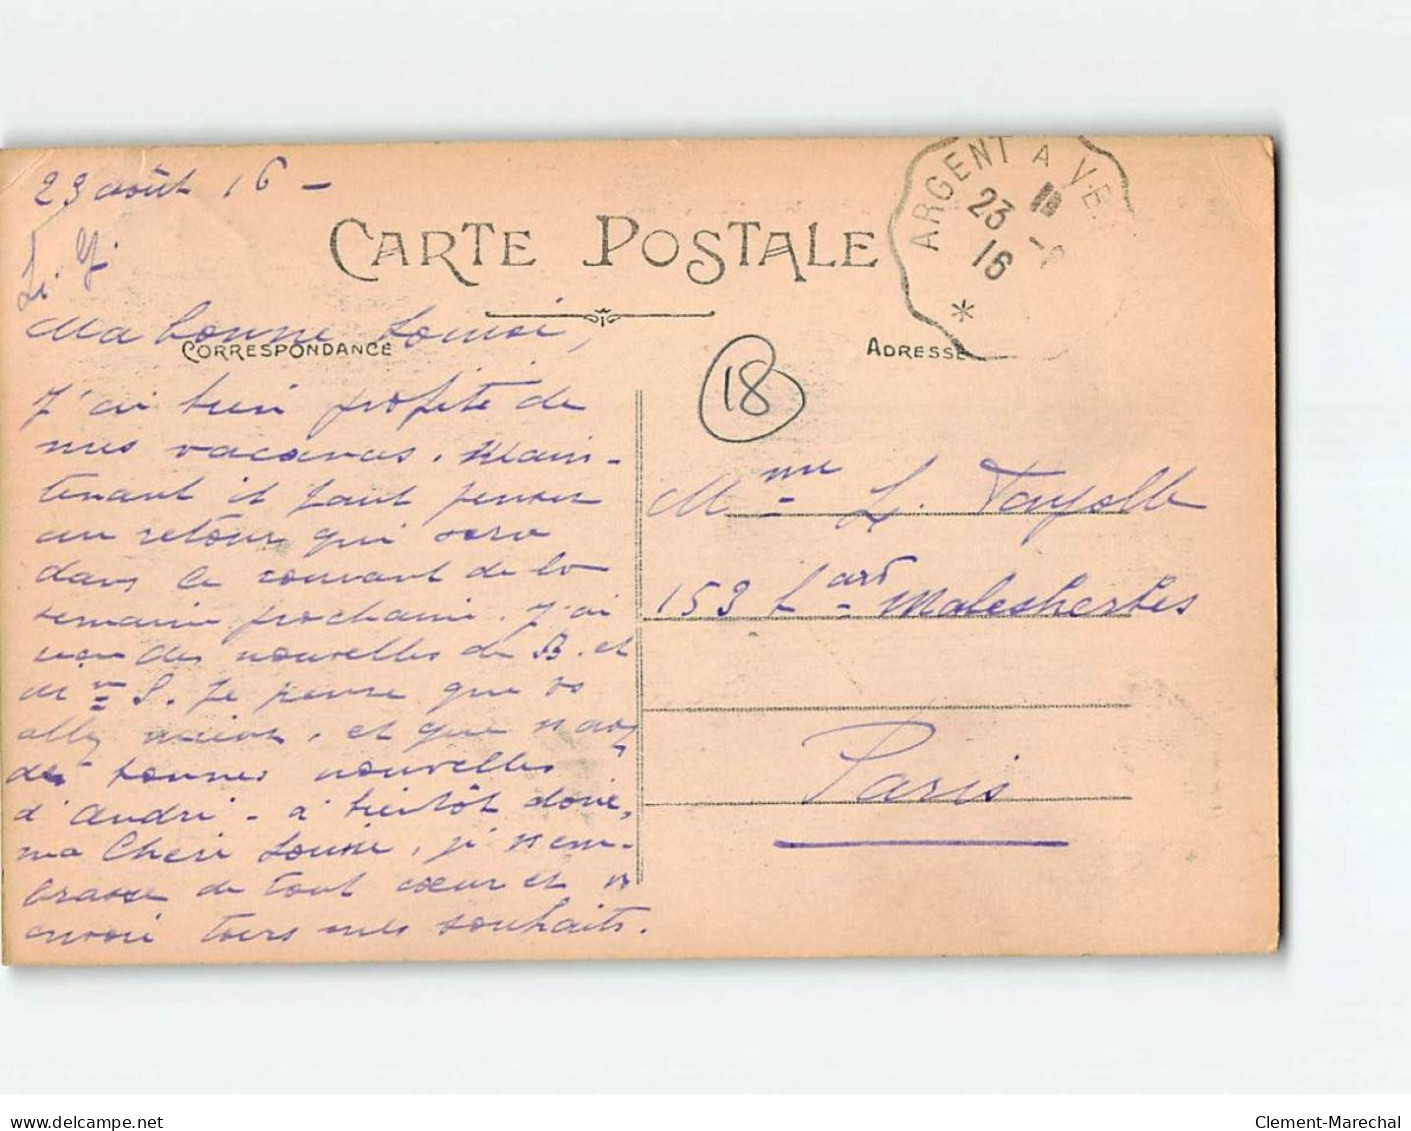 23 août 16 -
CARTE POSTALE
ARGENT A VE
23
16
*
Ma bonne Louise,
CORRESPONDANCE
ADRESSE
18
J'ai bien profité de
mes vacances. Main-
tenant il faut penser
au retour qui sera
dans le courant de la
semaine prochaine. J'ai
des nouvelles de B. et
Mr S. Je pense que vs
allez mieux, et que vs avez
de bonnes nouvelles
d'André - à bientôt donc,
ma chère Louise, je vs em-
brasse de tout cœur et vs
envoie tous mes souhaits.
Mme L. Fayolle
153 bard Malesherbes
Paris
www.delcampe.net
Clement-Marechal